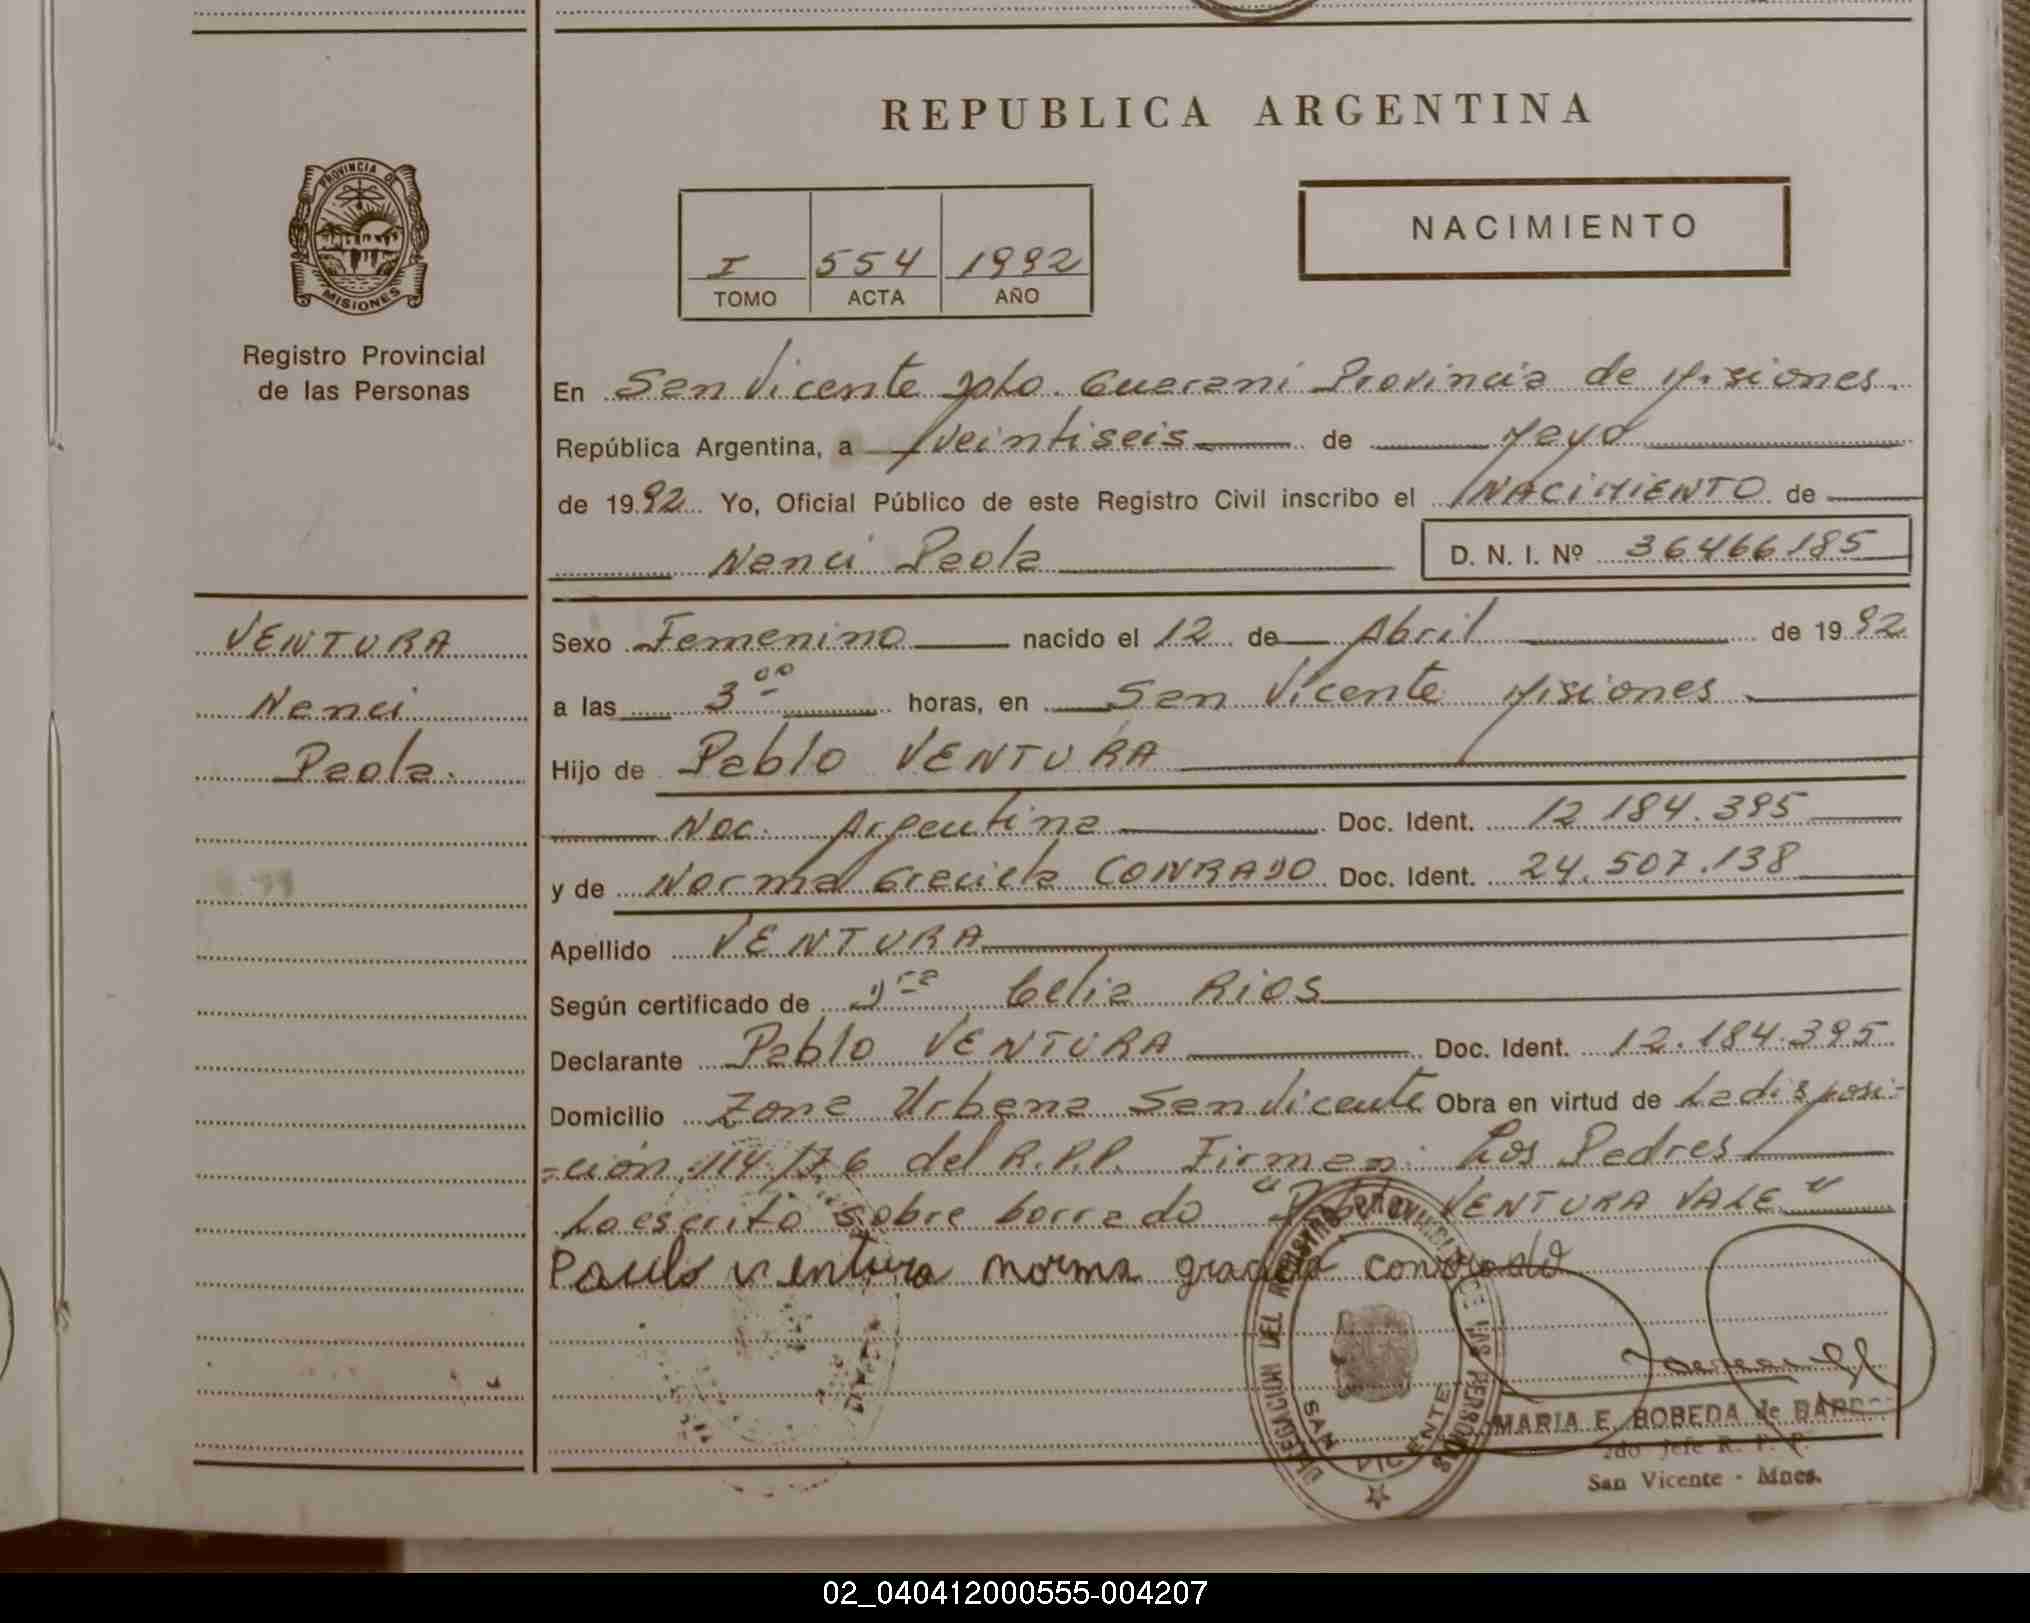 REPUBLICA ARGENTINA
PROVINCIA DE
MISIONES
Registro Provincial
de las Personas
I 554 1992
TOMO ACTA AÑO
NACIMIENTO
En San Vicente Dpto. Guarani Provincia de Misiones.
República Argentina, a veintiseis de Mayo
de 1992 Yo, Oficial Público de este Registro Civil inscribo el NACIMIENTO de
Nanci Paola
D. N. I. Nº 36466185
VENTURA
Nanci
Paola.
Sexo Femenino nacido el 12 de Abril de 1992
a las 3 00 horas, en San Vicente Misiones
Hijo de Pablo VENTURA
Nac. Argentina Doc. Ident. 12.184.395
y de Norma Graciela CONRADO Doc. Ident. 24.507.138
Apellido VENTURA
Según certificado de Dra Celia Rios
Declarante Pablo VENTURA Doc. Ident. 12.184.395
Domicilio Zona Urbana San Vicente Obra en virtud de La disposi-
-ción 114/76 del R.P.P. Firman: Los Padres
Lo escrito sobre borrado "Pablo VENTURA VALE"
Paulo ventura norma graciela conrado
DELEGACION DEL REGISTRO PROVINCIAL DE LAS PERSONAS
SAN VICENTE
MARIA E. BOBEDA de
2do Jefe R. P. P.
San Vicente - Mnes.
02_040412000555-004207